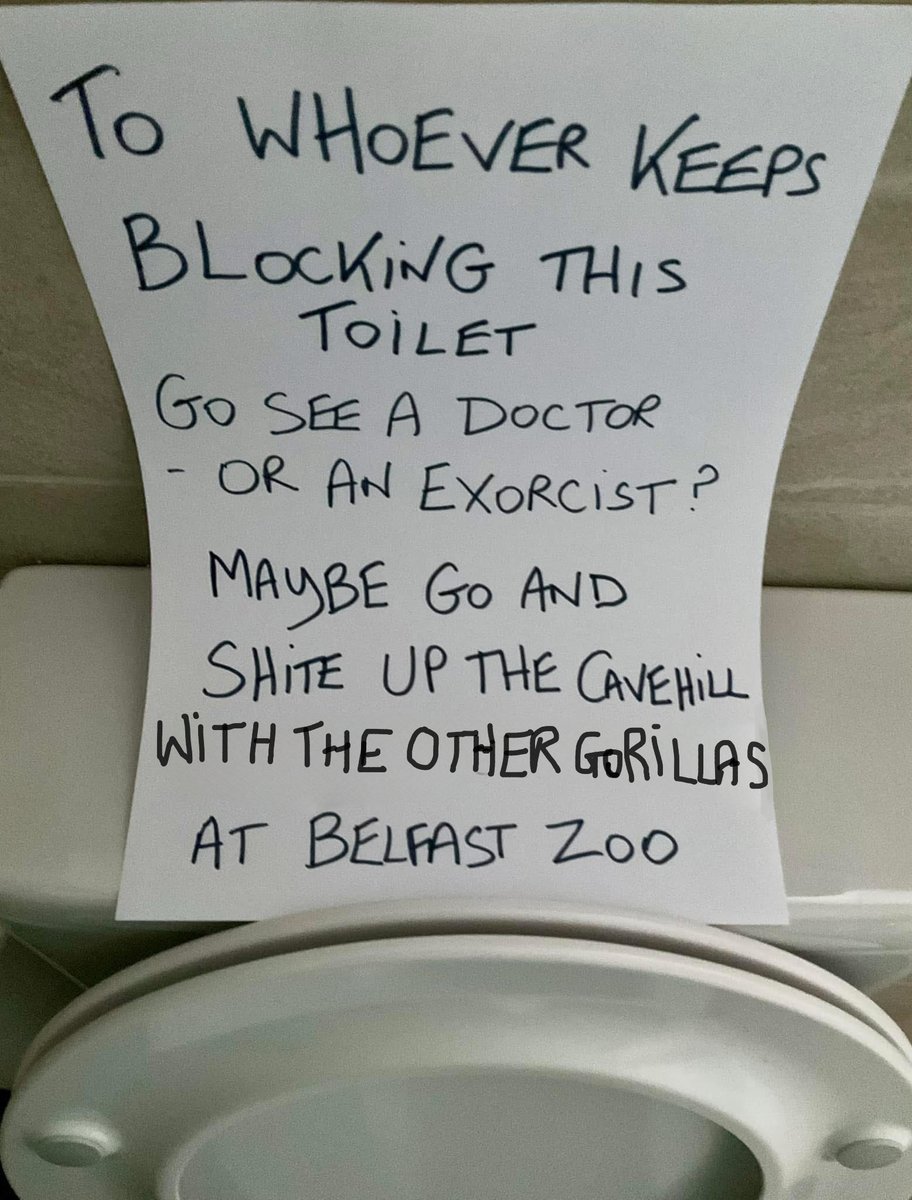 To WHOEVER KEEPS
BLOCKiNG THIS
TOiLET
GO SEE A DOCTOR
- OR AN EXORCiST?
MAYBE GO AND
SHiTE UP THE CAVEHiLL
WiTH THE OTHER GORiLLAS
AT BELFAST ZOO